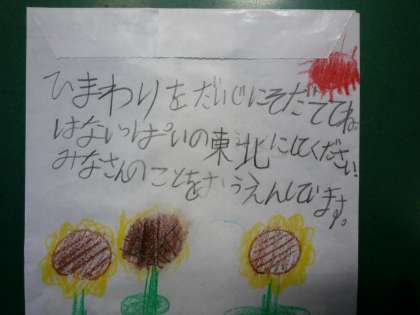 ひまわりをだいじにそだててね。
はないっぱいの東北にしてください。
みなさんのことをおうえんしています。